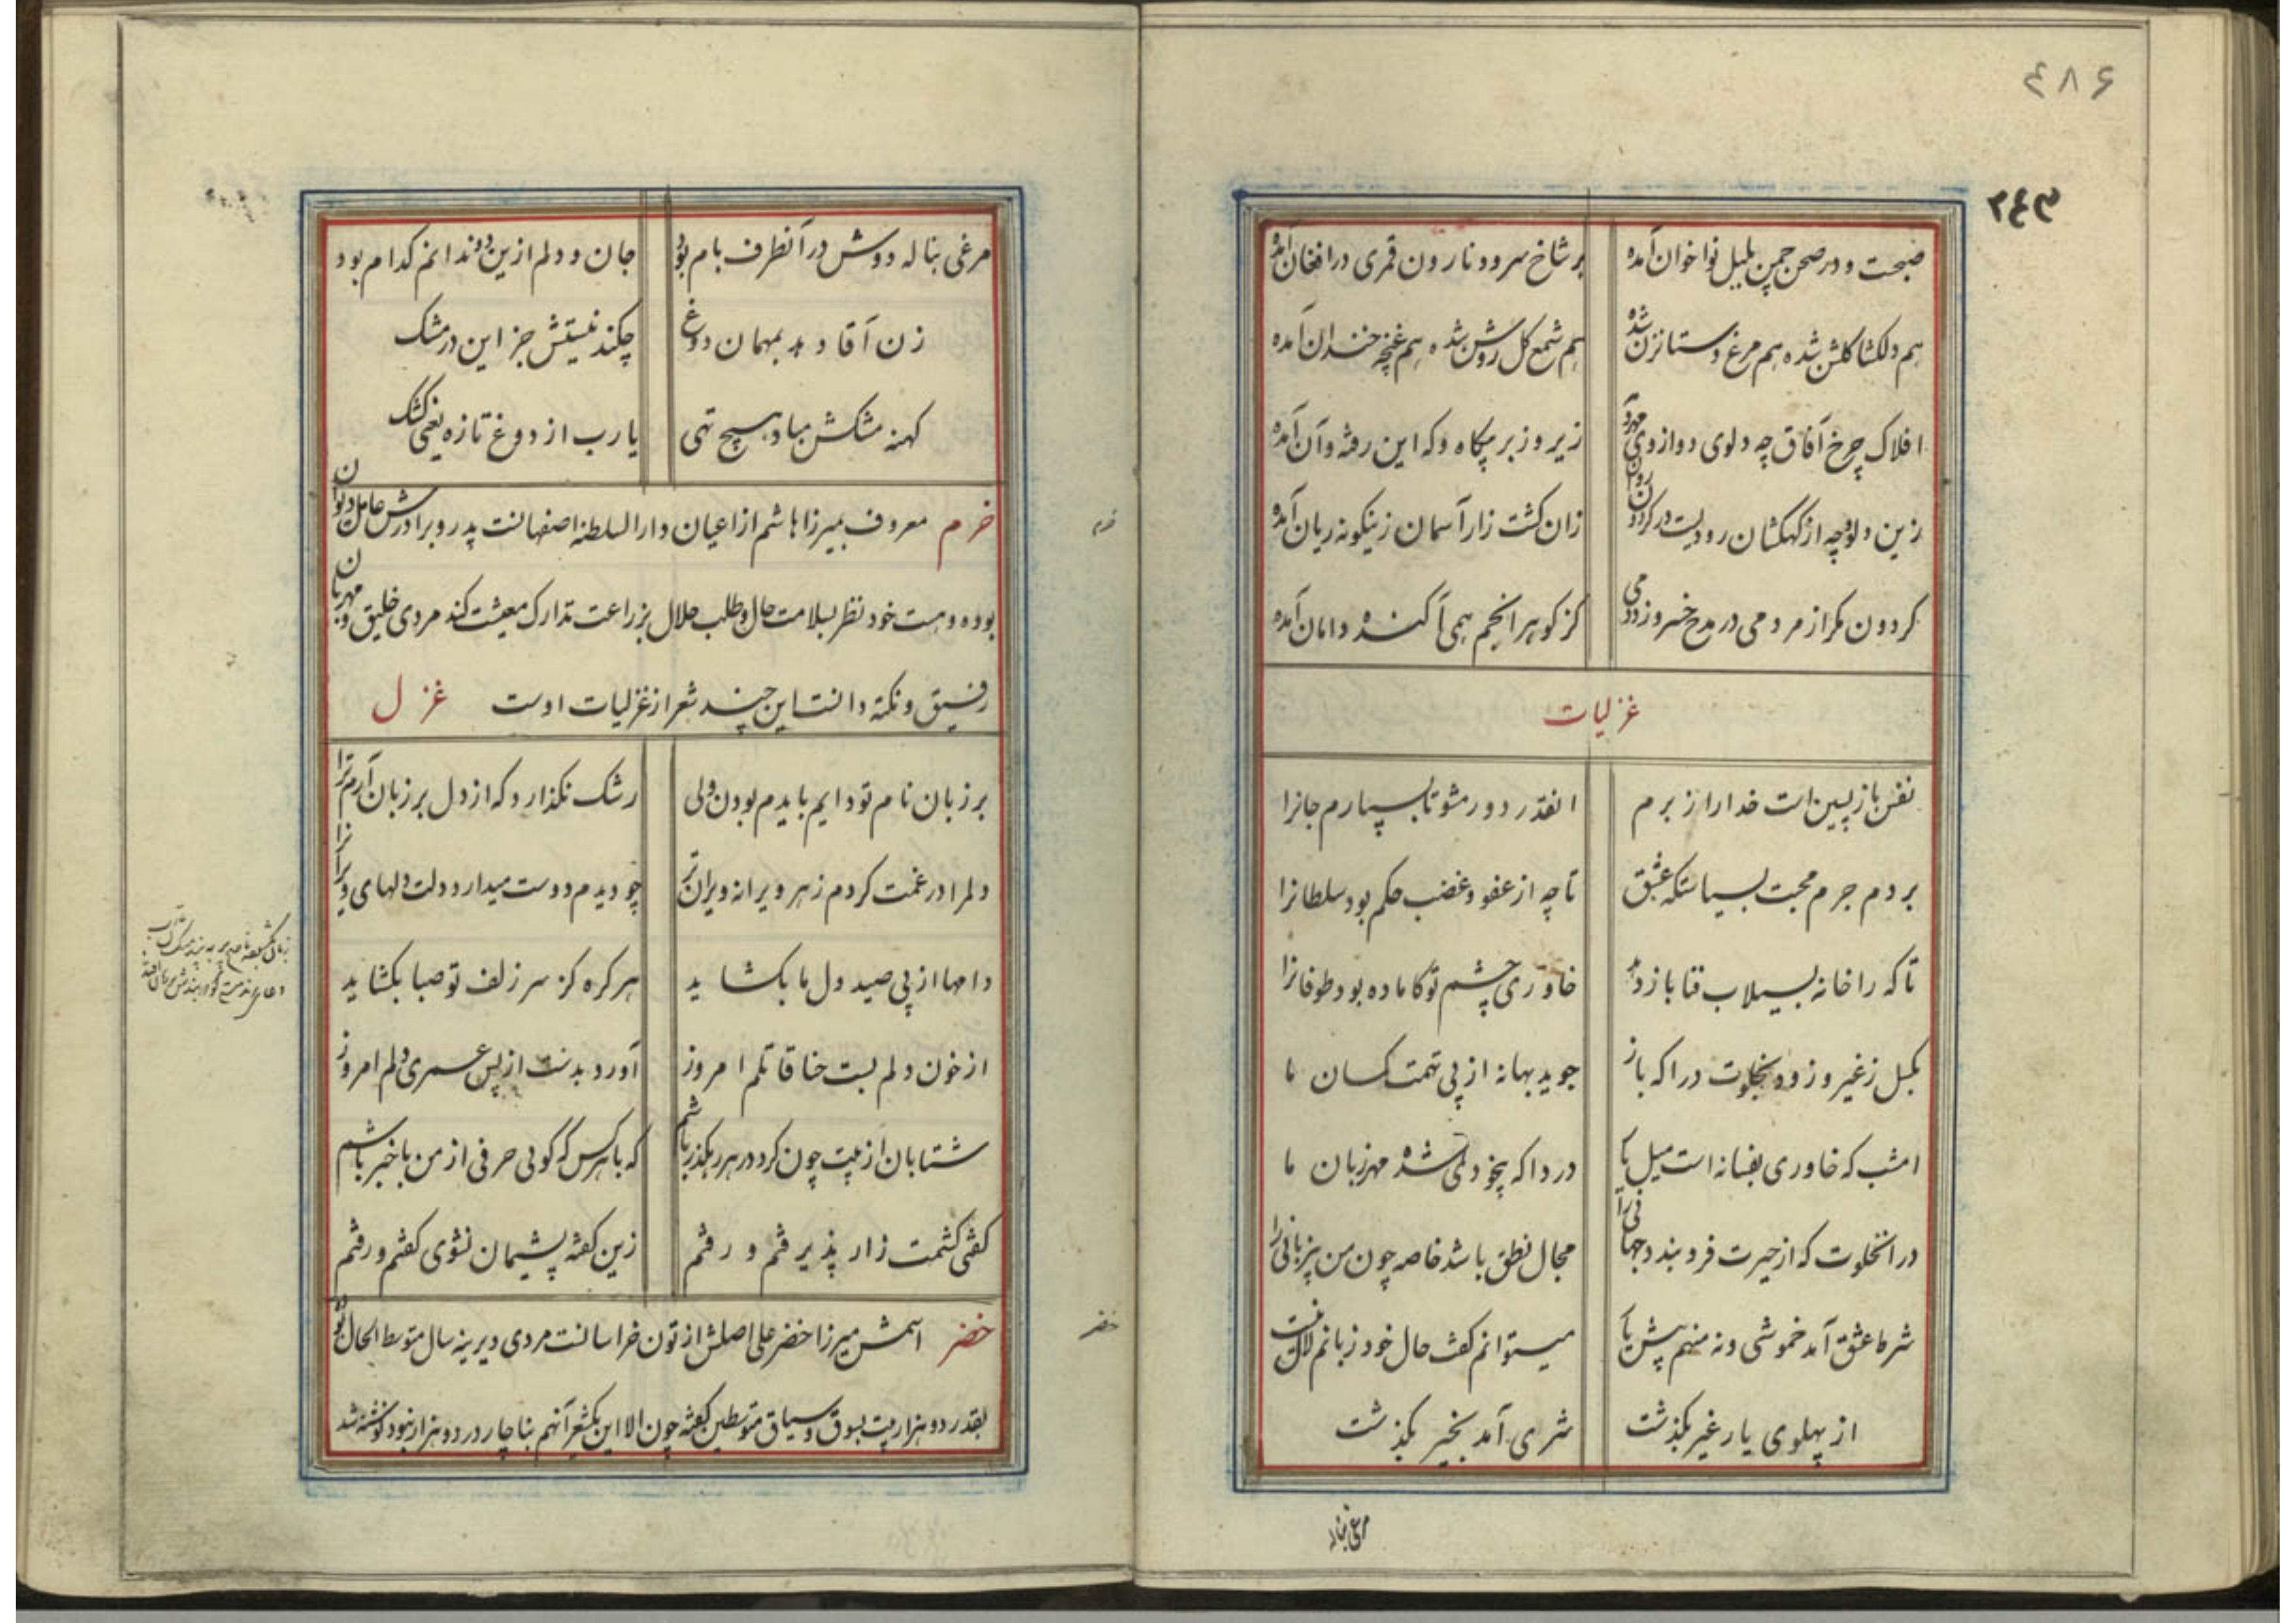 ۶۸۶
صبحت و در صحن چمن بلبل نوا خوان آمده بر شاخ سرو و نارون قمری در افغان آمده
هم دلکشا کلشن شده هم مرغ دستانزن شده هم شمع کل روشن شده هم غنچه خندان آمده
افلاک چرخ آفاق چه دلوی دو از وی زیر و زبر پیکاه و که این رفته و آن آمده
زین دلو و چه از کهکشان رودیست در کردون زان کشت زار آسمان زینکونه ریان آمده
کردون مکر از مردمی در مدح خسرو زد دمی کز کوهر انجم همی آکنده دامان آمده
غزلیات
نفس بازپسین است خدا را ز برم انقدر دور مشو تا بسپارم جانرا
بردم جرم محبت بسیاستکه عشق تا چه از عفو و غضب حکم بود سلطانرا
تا که را خانه بسیلاب فنا باز دهد خاوری چشم تو کاماده بود طوفانرا
بکسل ز غیر و زود بخلوت درا که باز جوید بهانه از پی تهمت کسان ما
امشب که خاوری بفسانه است میل یار دردا که بیخودی شده مهر زبان ما
در انخلوت که از حیرت فرو بندد مجال نطق باشد خاصه چون من بیزبانی را
شرط عشق آمد خموشی ورنه منهم پیش یار میتوانم کفت حال خود زبانم لال نیست
از پهلوی یار غیر بکذشت شری آمد بخیر بکذشت
مرغی بناله
مرغی بناله دوش در آنطرف بام بود جان و دلم ازین دو ندانم کدام بود
زن آقا دهد بمهمان دوغ چکند نیستش جز این در مشک
کهنه مشکش مباد هیچ تهی یا رب از دوغ تازه یعنی کشک
خرم
خرم معروف بمیرزا هاشم از اعیان دار السلطنه اصفهانست پدر و برادرش عامل دیوان
بوده و هست خود نظر بسلامت حال و طلب حلال بزراعت تدارک معیشت کند مردی خلیق و مهربان
رفیق و نکته دانست این چند شعر از غزلیات اوست غزل
بر زبان نام تو دایم بایدم بودن ولی رشک نکذارد که از دل بر زبان آرم ترا
دلم را در غمت کردم ز هر ویرانه ویران تر چو دیدم دوست میدارد دلت دلهای ویرانرا
دامها از پی صید دل ما بکشاید هر کره کز سر زلف تو صبا بکشاید
از خون دلم بست حنا قاتلم امروز آورد بدست از پس عمری دلم امروز
شتابان از پیت چون کرد در هر رهکذر باشم که با هر کس که کویی حرفی از من با خبر باشم
کفتی کشمت زار پذیرفتم و رفتم زین کفته پشیمان نشوی کفتم و رفتم
خضر
خضر اسمش میرزا خضر علی اصلش از تون خراسانست مردی دیرینه سال متوسط الحال بوده
بقدر دو هزار بیت بسوق و سیاق متوسطین کفته چون الا این یکشعر آنهم بناچار در دو هزار نبود نوشته شد